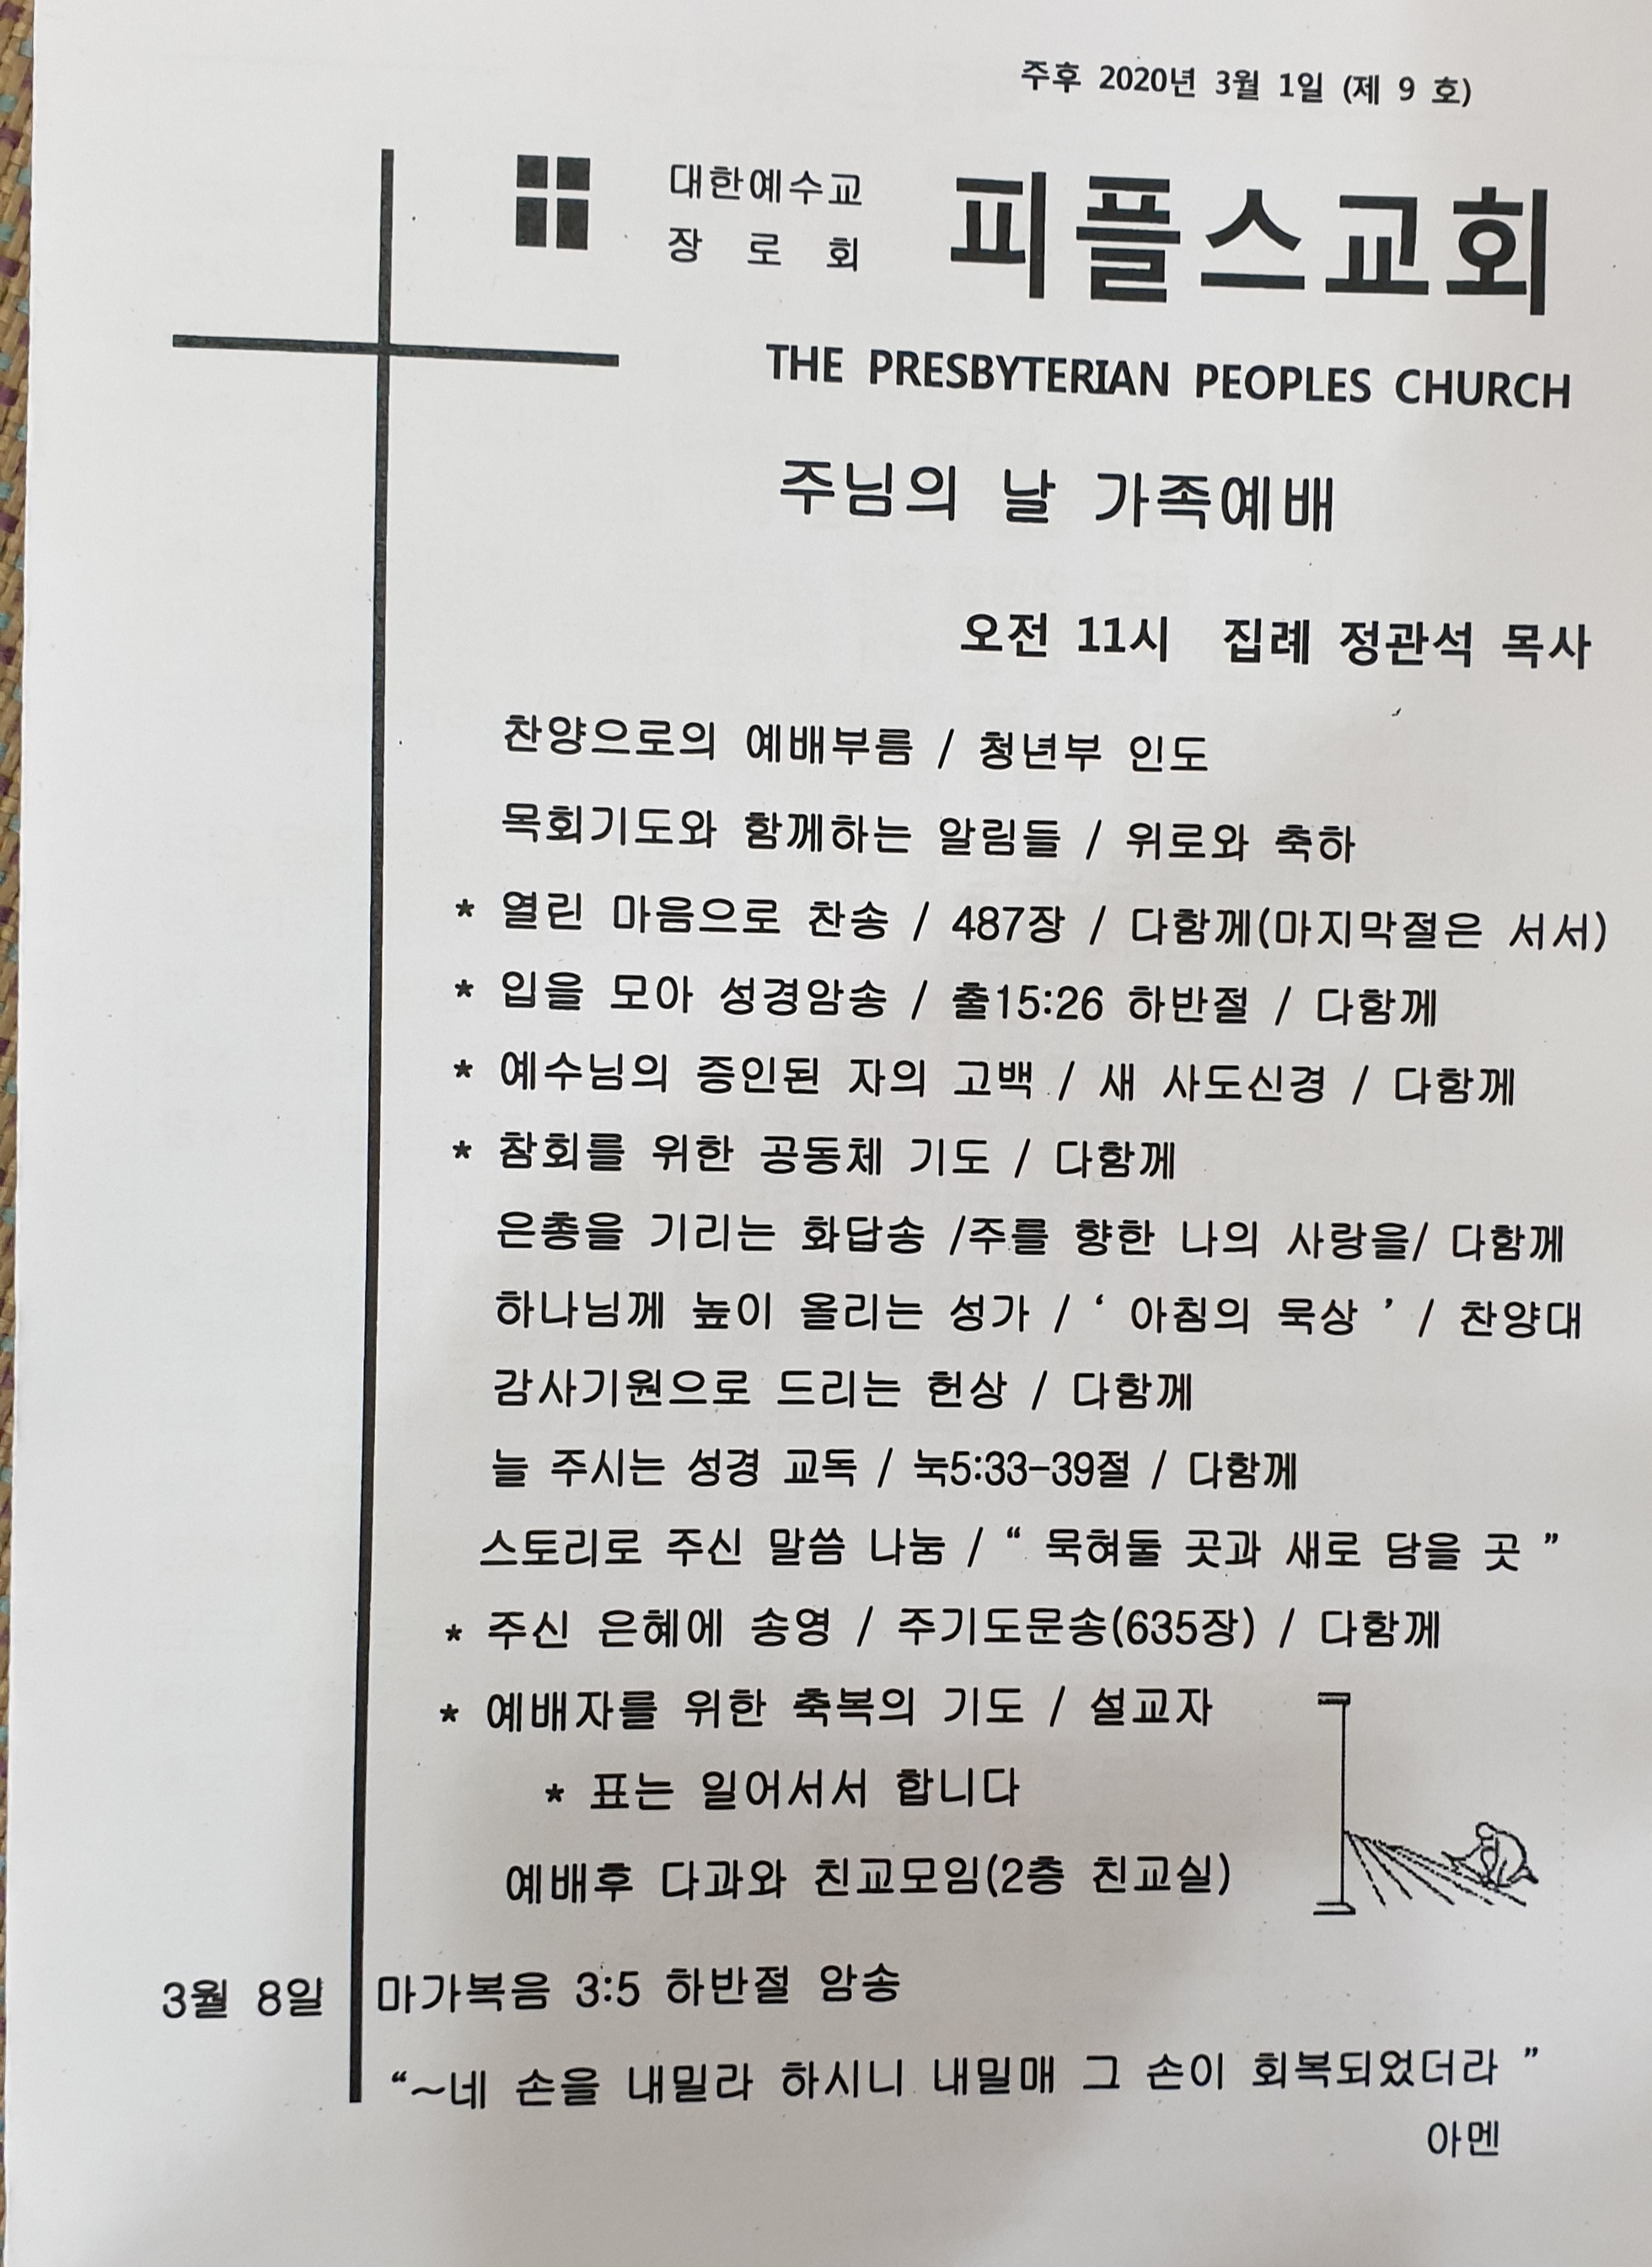 주후 2020년 3월 1일 (제 9 호)
대한예수교
장 로 회
피플스교회
THE PRESBYTERIAN PEOPLES CHURCH
주님의 날 가족예배
오전 11시 집례 정관석 목사
찬양으로의 예배부름 / 청년부 인도
목회기도와 함께하는 알림들 / 위로와 축하
* 열린 마음으로 찬송 / 487장 / 다함께(마지막절은 서서)
* 입을 모아 성경암송 / 출15:26 하반절 / 다함께
* 예수님의 증인된 자의 고백 / 새 사도신경 / 다함께
* 참회를 위한 공동체 기도 / 다함께
은총을 기리는 화답송 /주를 향한 나의 사랑을/ 다함께
하나님께 높이 올리는 성가 / ‘ 아침의 묵상 ’ / 찬양대
감사기원으로 드리는 헌상 / 다함께
늘 주시는 성경 교독 / 눅5:33-39절 / 다함께
스토리로 주신 말씀 나눔 / “ 묵혀둘 곳과 새로 담을 곳 ”
* 주신 은혜에 송영 / 주기도문송(635장) / 다함께
* 예배자를 위한 축복의 기도 / 설교자
* 표는 일어서서 합니다
예배후 다과와 친교모임(2층 친교실)
3월 8일 마가복음 3:5 하반절 암송
“~네 손을 내밀라 하시니 내밀매 그 손이 회복되었더라 ”
아멘